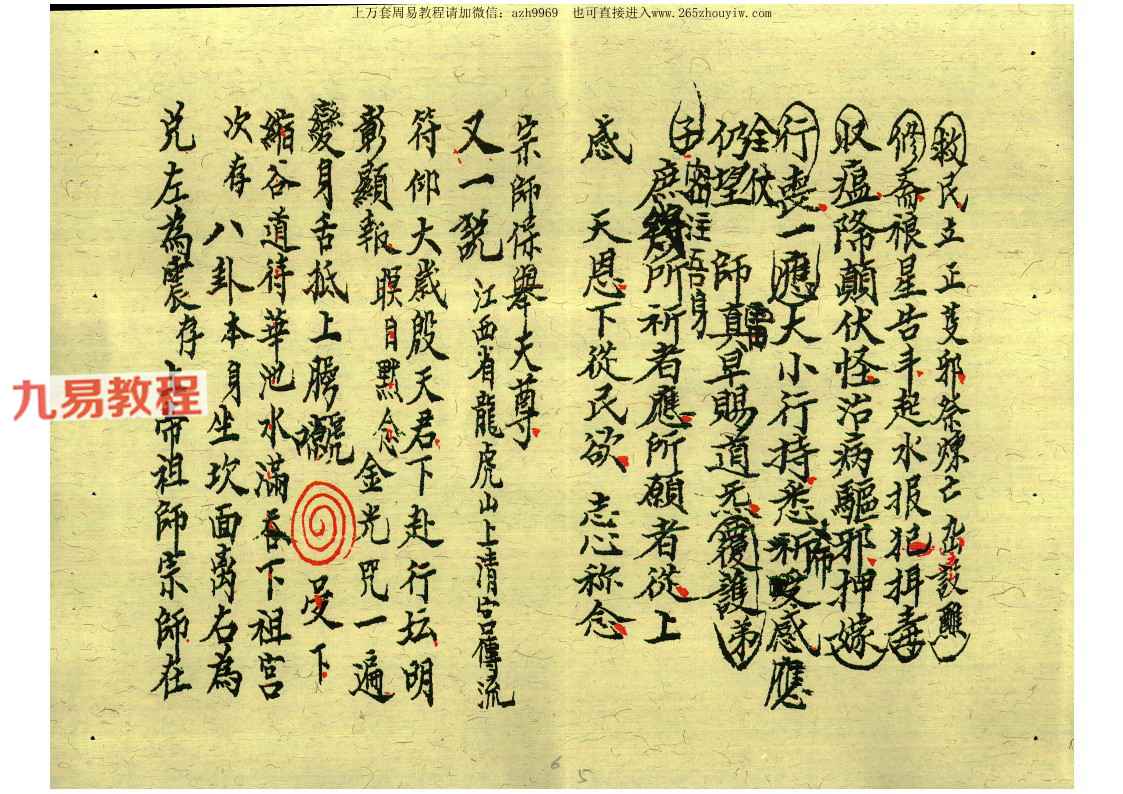 上万套周易教程请加微信：azh9969 也可直接进入www.265zhouyiw.com
救民立正芟邪祭煉亡 設醮
修斋禳星告斗起水报犯 毒
収瘟降顛伏怪治病驅邪押
行喪一應大小行持悉祈 感應
雷
席
全仗
仍望 師真早賜道炁覆護弟
子 密注吾身
庶 所祈者應所願者從上
感 天恩下從民欲 志心称念
宗師保舉天尊
又一説 江西省龍虎山上清宫傳流
符仰大歲殷天君下赴行坛明
彰顯報 瞑目黙念金光咒一遍
變身舌抵上腭 下
縮谷道待華池水滿吞下祖宫
次存八卦本身坐坎面离右為
兑左為震存上帝祖師宗師在
九易教程
6
5